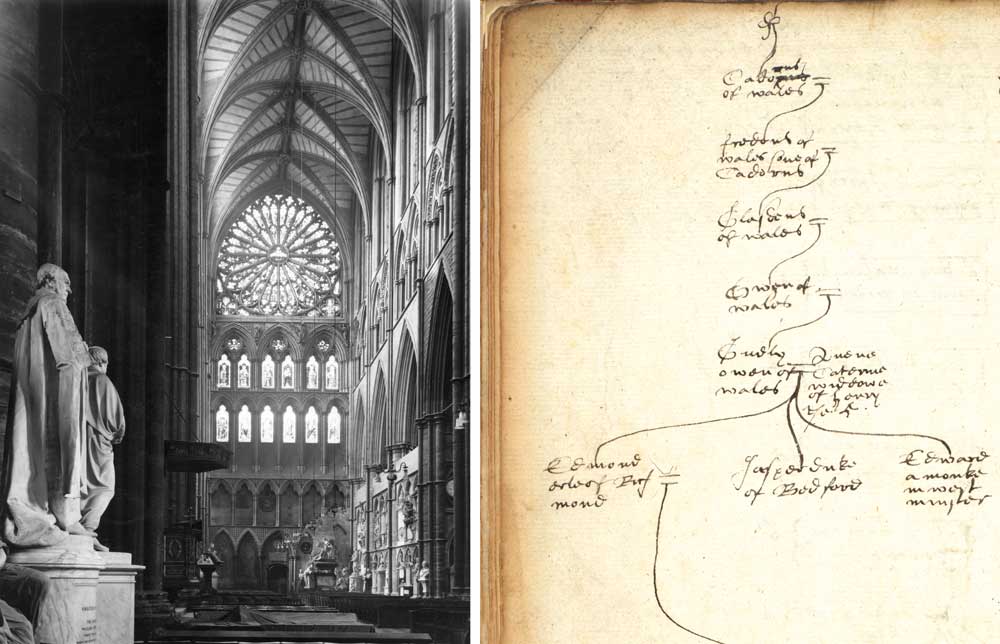 of wales
of
wales sone of
Cadorus
of wales
Owen of
wales
owen of
wales
Quene
Caterine
widowe
of Henry
the 5.
Edmond
erle of Rich
mond
Jasper duke
of Bedford
Edward
a monke
in west
minster